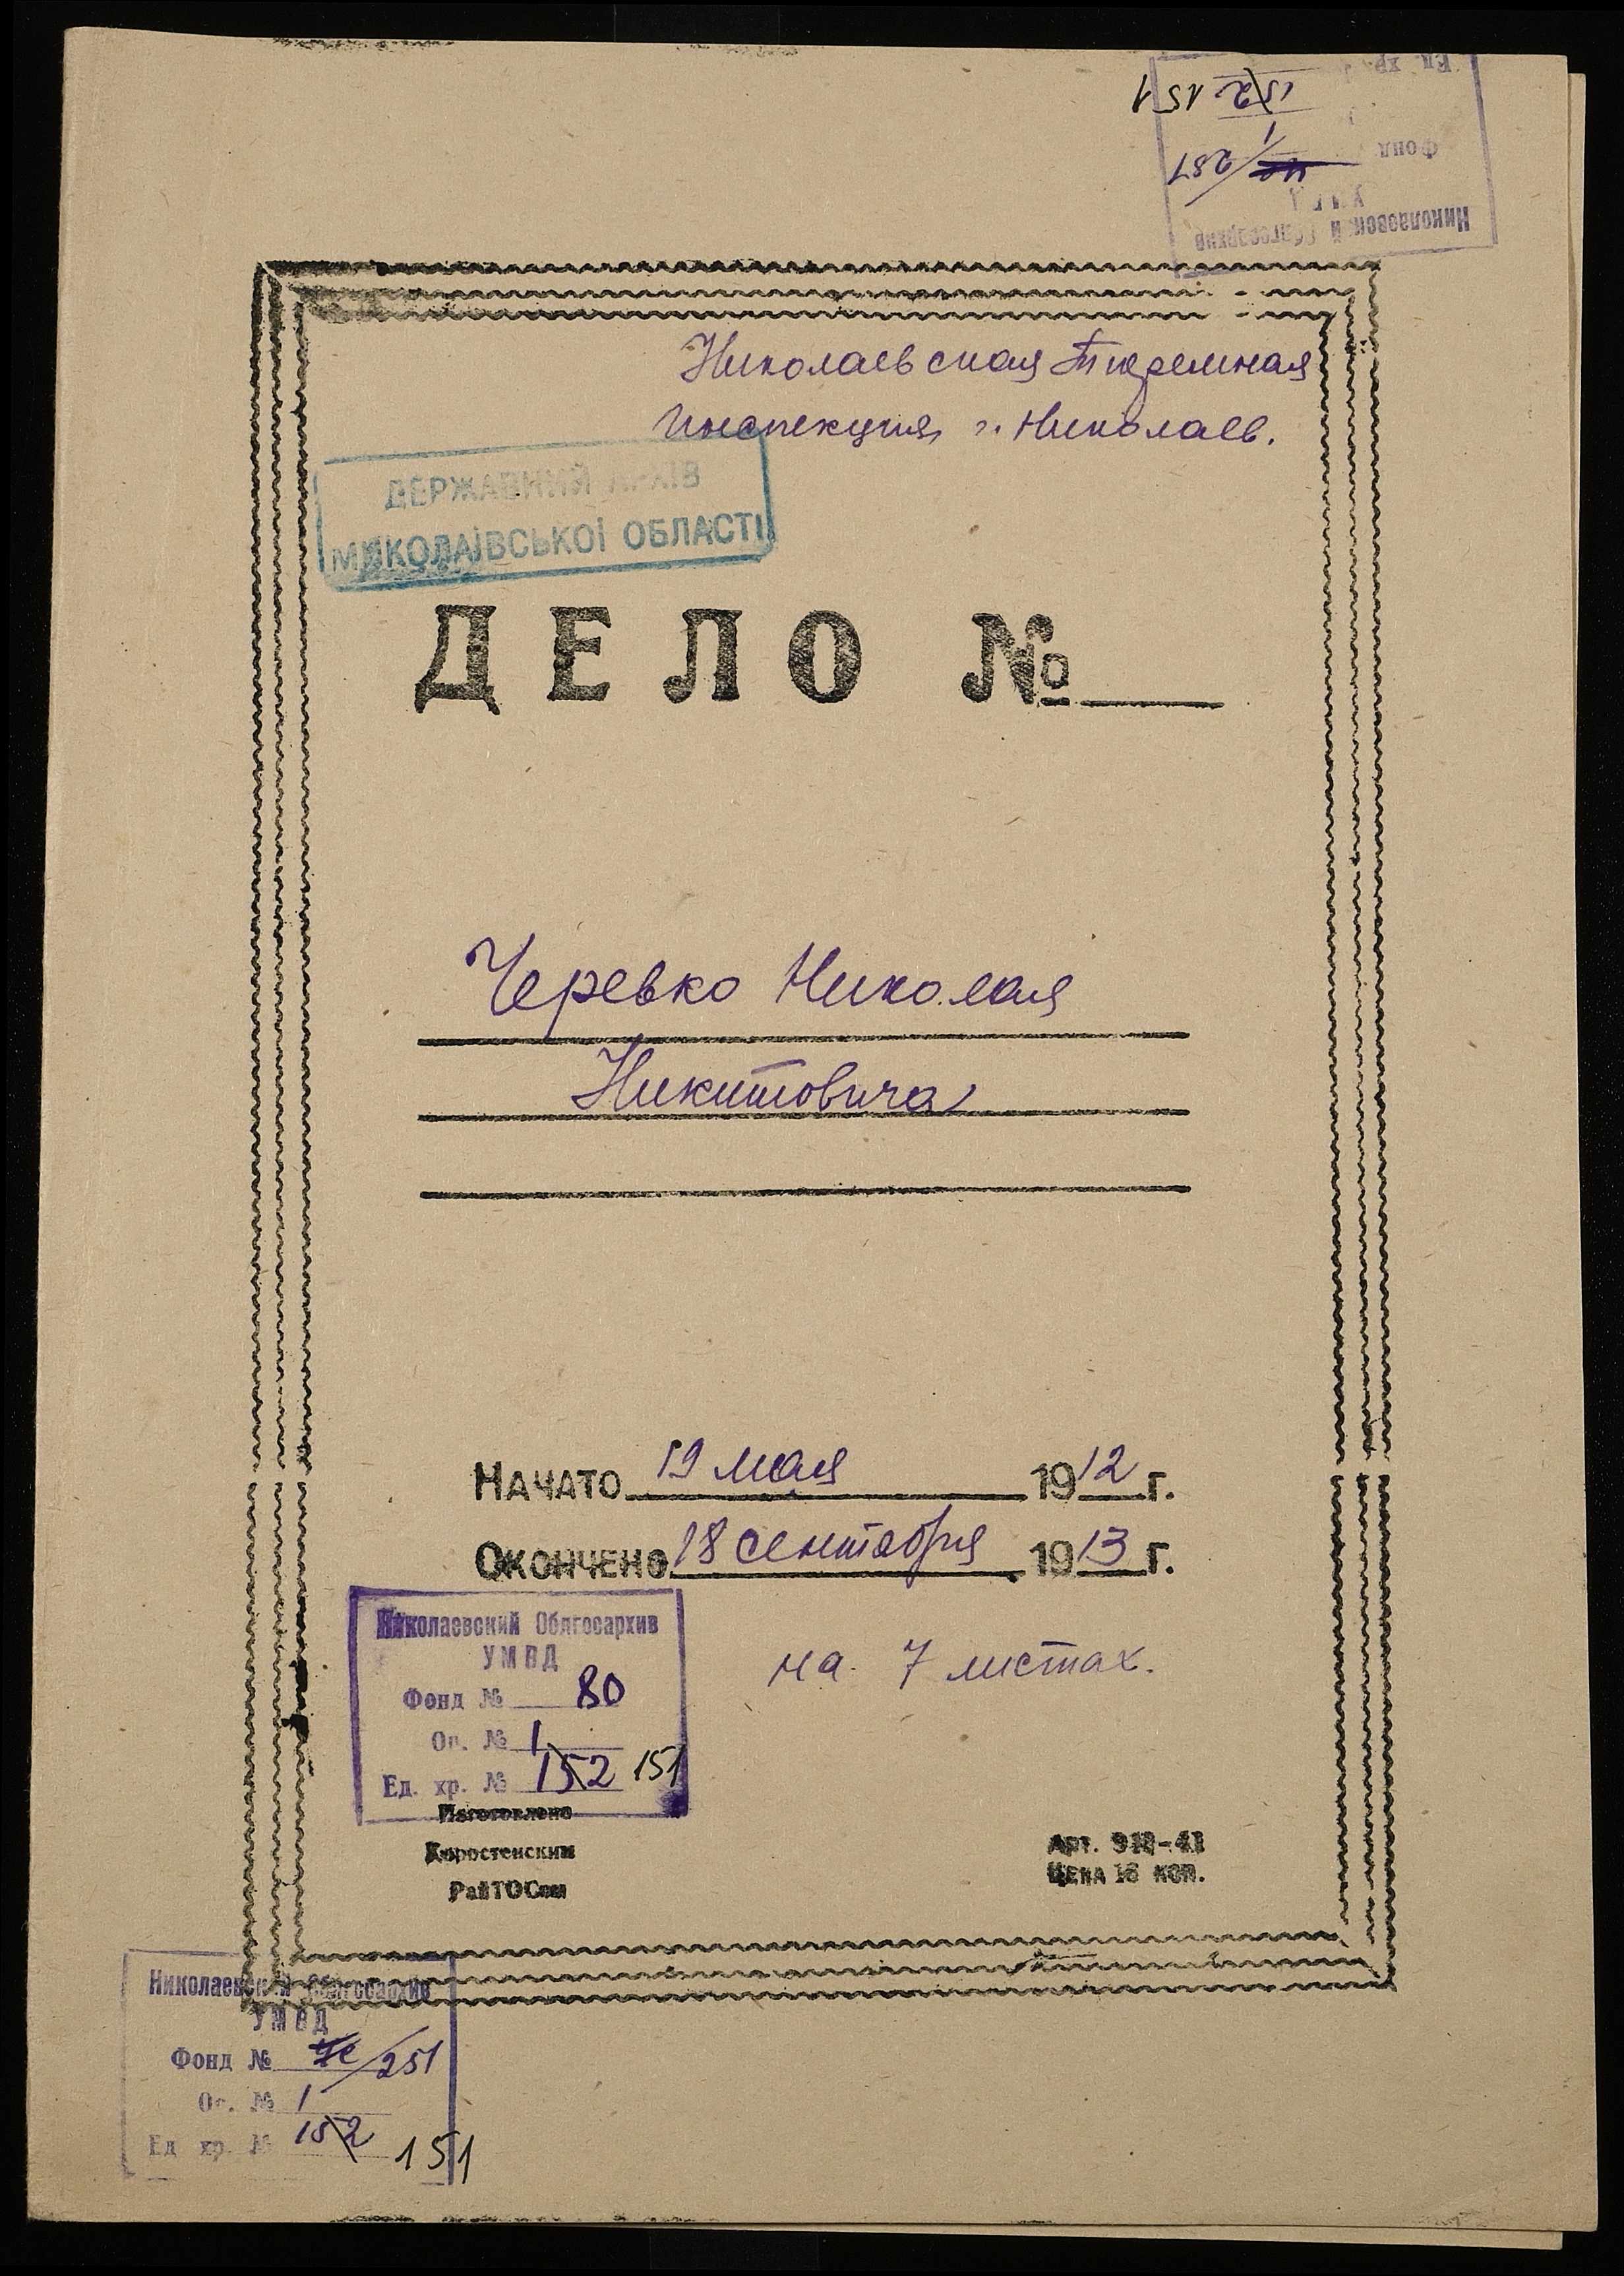 151 152
1
281
Фонд
Николаевский Облгосархив
Николаевская Тюремная
Инспекция г. Николаев.
ДЕРЖАВНИЙ АРХІВ
МИКОЛАЇВСЬКОЇ ОБЛАСТІ
ДЕЛО №
Черевко Николая
Никитовича
НАЧАТО 19 мая 1912 г.
ОКОНЧЕНО 18 сентября 1913 г.
на 7 листах.
Николаевский Облгосархив
УМВД
Фонд № 80
Оп. № 1
Ед. хр. № 152 151
Изготовлено
Коростенским
РайТОСом
Арт.
ЦЕНА 16 КОП.
Николаевский Облгосархив
УМВД
Фонд № 251
Оп. № 1
Ед хр. № 152 151